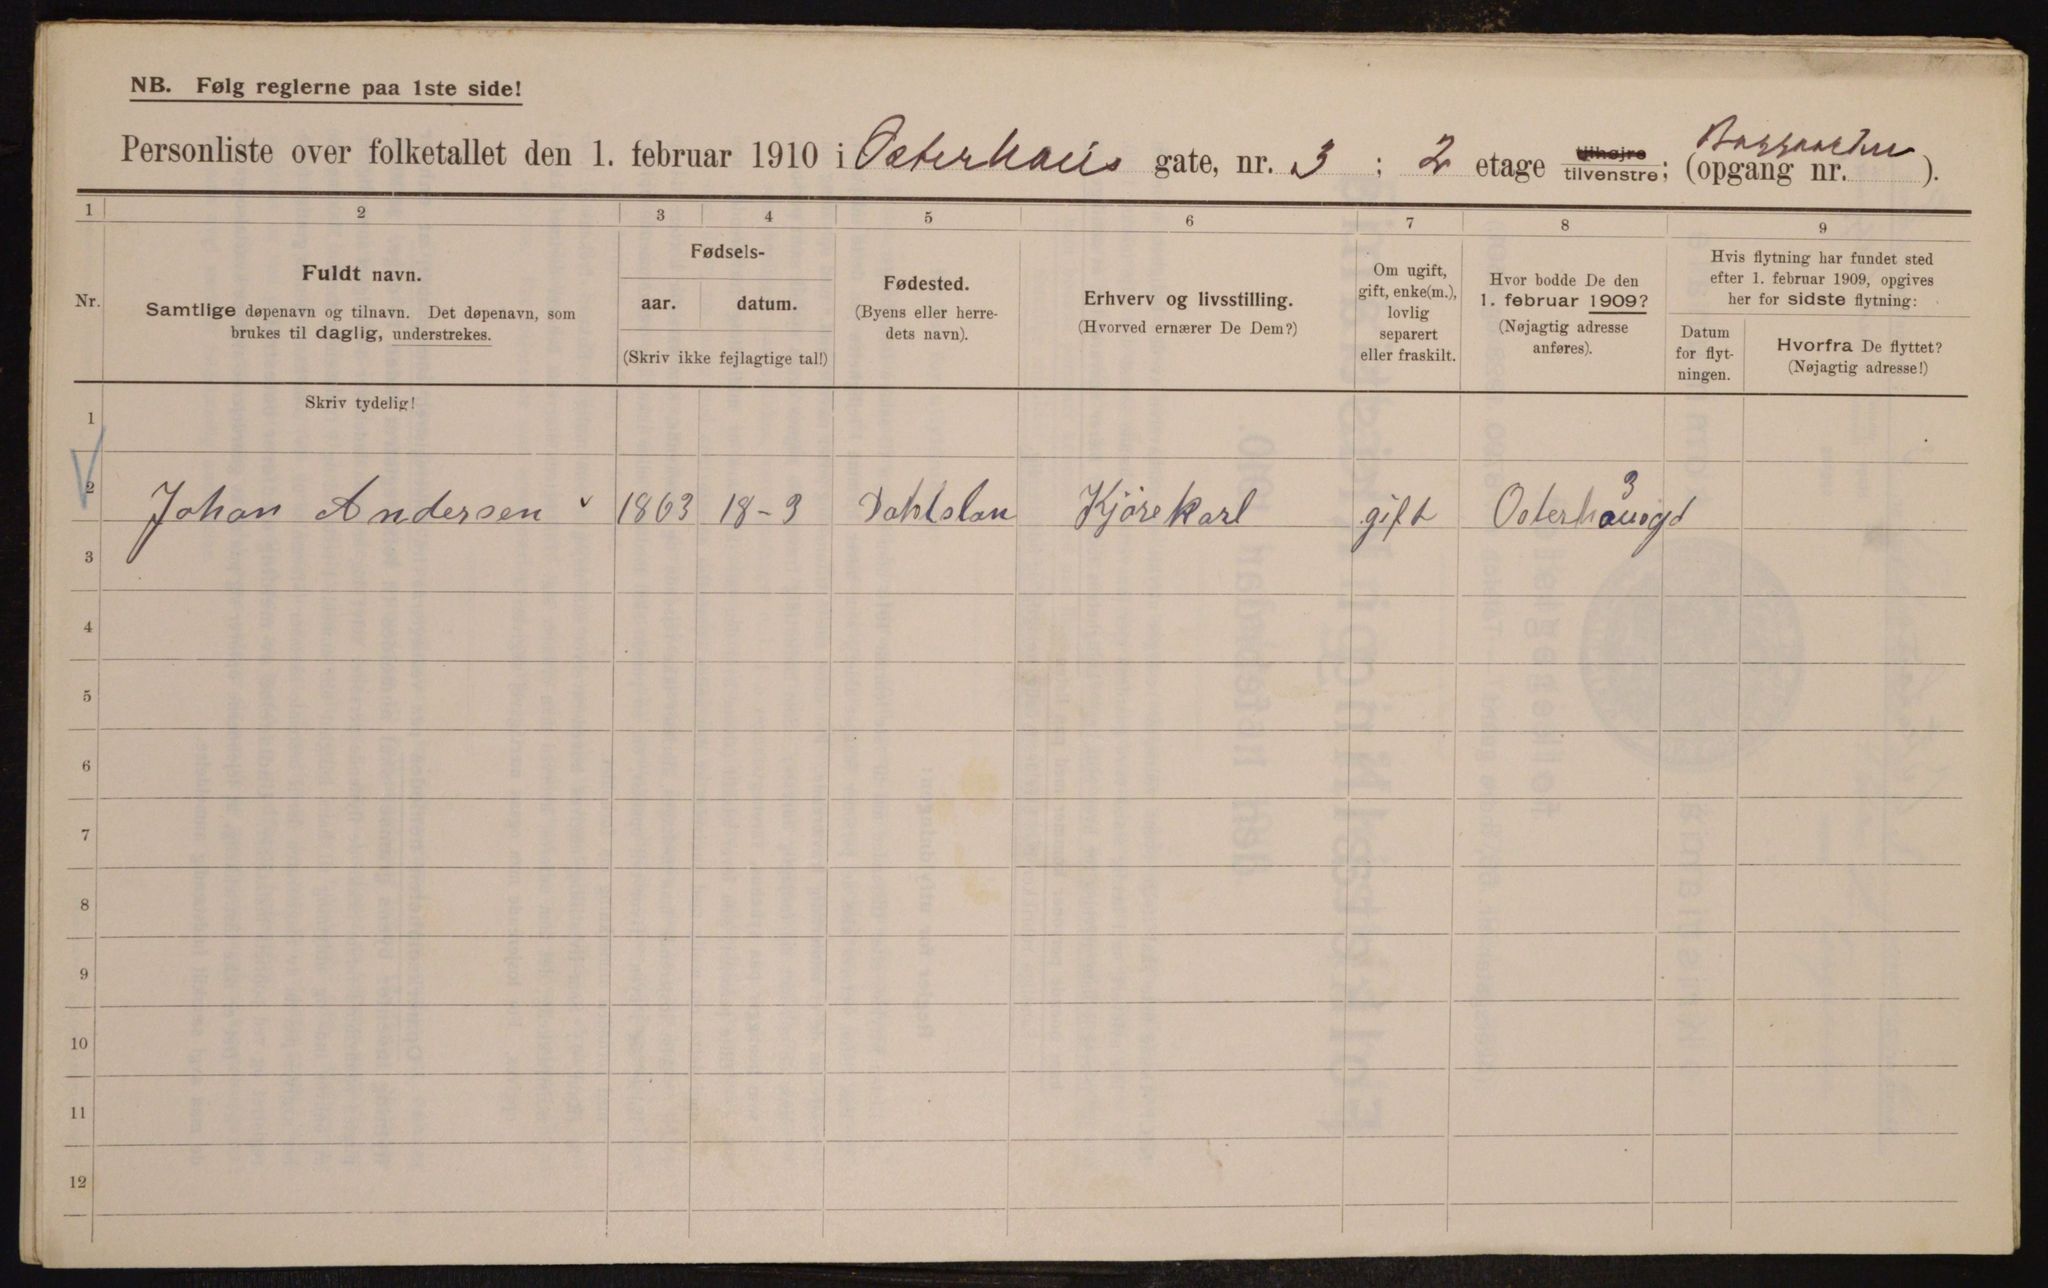 NB. Følg reglerne paa 1ste side!
Personliste over folketallet den 1. februar 1910 i Osterhaus gate, nr. 3 : 2 etage tilhøjre tilvenstre; (opgang nr. ).
1 2 3 4 5 6 7 8 9
Nr.
Fuldt navn.
Samtlige døpenavn og tilnavn. Det døpenavn, som
brukes til daglig, understrekes.
Fødsels-
aar. datum.
(Skriv ikke fejlagtige tal!)
Fødested.
(Byens eller herre-
dets navn).
Erhverv og livsstilling.
(Hvorved ernærer De Dem?)
Om ugift,
gift, enke(m.),
lovlig
separert
eller fraskilt.
Hvor bodde De den
1. februar 1909?
(Nøjagtig adresse
anføres).
Hvis flytning har fundet sted
efter 1. februar 1909, opgives
her for sidste flytning:
Datum
for flyt-
ningen.
Hvorfra De flyttet?
(Nøjagtig adresse!)
Skriv tydelig!
1
2 Johan Andersen 1863 18-3 Dahlslan Kjørekarl gift Osterhausgd 3
3
4
5
6
7
8
9
10
11
12